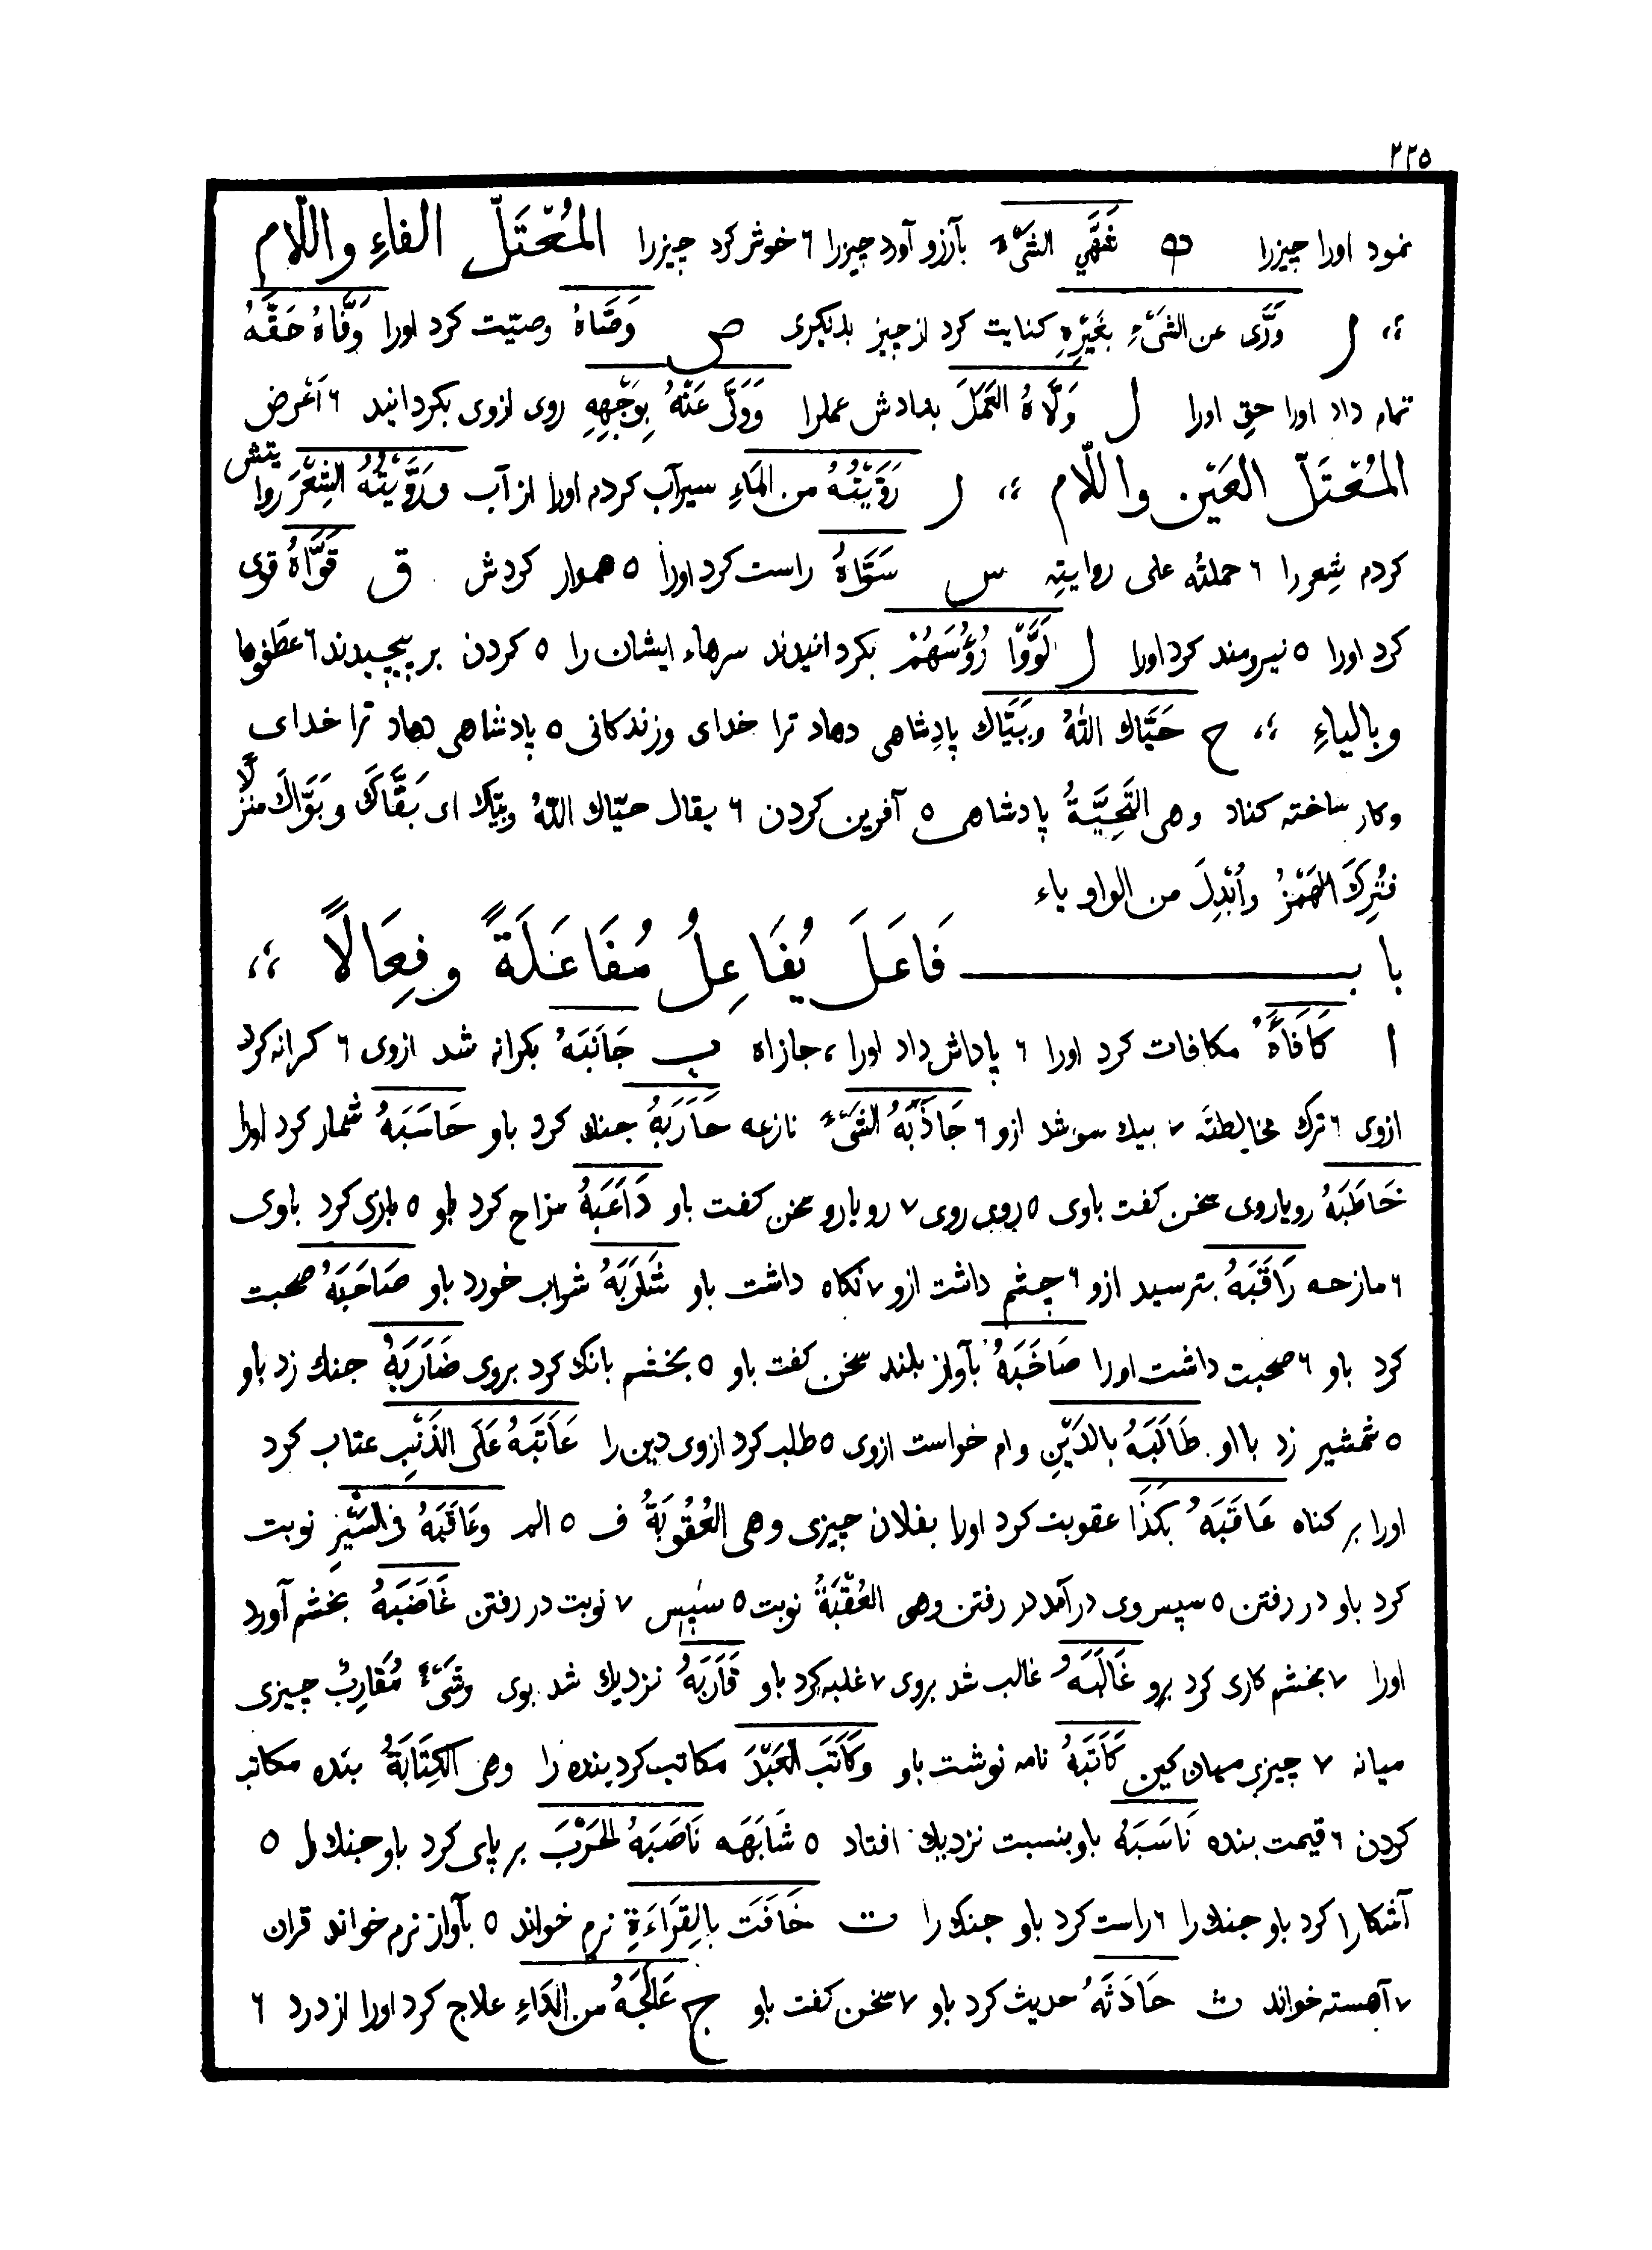 ٢٢٥
نمود اورا چیزرا ه شَهَّي الشیْءَ بآرزو آورد چیزرا ٦ خوش کرد چیزرا المُعْتَلّ الفاءِ واللّام
؛؛ ر وَرَّى عن الشیْءِ بغَیْرِهِ کنایت کرد از چیز بدیکری ص وَصَّاهُ وصیّت کرد اورا وَفَّاهُ حَقَّهُ
تمام داد اورا حق اورا ل وَلَّاهُ العَمَلَ بدادش عملرا وَوَلَّى عَنْهُ بِوَجْهِهِ روی ازوی بکردانید ٦ اَعْرض
المُعْتَلّ العَیْن واللّام ؛؛ ر رَوَّیْتُهُ من المَاءِ سیرآب کردم اورا از آب ورَوَّیْتُهُ الشِعْرَ روایتش
کردم شِعررا ٦ حملتُه علی روایتِهِ س سَوَّاهُ راست کرد اورا ٥ هموار کردش ق قَوَّاهُ قوی
کرد اورا ٥ نیرومند کرد اورا ل لَوَّوْا رُؤُسَهُمْ بکردانیدند سرهاء ایشان را ٥ کردن بر پیچیدند ٦ عطَفوها
وبالیاءِ ؛؛ ح حَیَّاك اللهُ وبَیَّاك پادِشاهی دهاد ترا خدای وزندکانی ٥ پادشاهی دهاد ترا خدای
وکار ساخته کناد وهی التَحِیَّةُ پادشاهی ٥ آفرین کردن ٦ یقال حیّاك اللهُ وبیّك ای بَقَّاكَ وبَوَّاكَ منزلًا
فتُرِكَ الهَمْزُ وأُبْدِلَ من الواو یاء
باب فَاعَلَ یُفَاعِلُ مُفَاعَلَةً وفِعَالًا ؛؛
ا کَافَأَهُ مکافات کرد اورا ٦ پاداش داد اورا، جازاه ب جَانَبَهُ بکرانه شد ازوی ٦ کرانه کرد
ازوی ٦ ترك مخالطته ٧ بیك سو شد ازو ٦ جَاذَبَهُ الشیْءَ نازعه حَارَبَهُ جنك کرد باو حَاسَبَهُ شمار کرد اورا
خَاطَبَهُ رویاروی سخن کفت باوی ٥ روی روی ٧ رو بارو سخن کفت باو دَاعَبَهُ مزاح کرد باو ٥ بازی کرد باوی
٦ مازحه رَاقَبَهُ بترسید ازو ٦ چشم داشت ازو ٧ نکاه داشت باو شَارَبَهُ شراب خورد باو صَاحَبَهُ صحبت
کرد باو ٦ صحبت داشت اورا صَاخَبَهُ بآواز بلند سخن کفت باو ٥ بخشم بانك کرد بروی ضَارَبَهُ جنك زد باو
٥ شمشیر زد بااو طَالَبَهُ بالدَیْنِ وام خواست ازوی ٥ طلب کرد ازوی دین را عَاتَبَهُ عَلَى الذَنْبِ عتاب کرد
اورا بر کناه عَاقَبَهُ بکَذَا عقوبت کرد اورا بفلان چیزی وهی العُقُوبَةُ ف ٥ الم وعَاقَبَهُ فی السَّیْرِ نوبت
کرد باو در رفتن ٥ سپس وی درآمد در رفتن وهی العُقْبَةُ نوبت ٥ سپس ٧ نوبت در رفتن غَاضَبَهُ بخشم آورد
اورا ٧ بخشم کاری کرد برو غَالَبَهُ غالب شد بروی ٧ غلبه کرد باو قَارَبَهُ نزدیك شد بوی وشَیْءٌ مُقَارِبٌ چیزی
میانه ٧ چیزی میان کین کَاتَبَهُ نامه نوشت باو وکَاتَبَ العَبْدَ مکاتب کرد بنده را وهی الکِتَابَةُ بنده مکاتب
کردن ٦ قیمت بنده نَاسَبَهُ باو بنسبت نزدیك افتاد ٥ شَابَهَه نَاصَبَهُ الحَرْبَ بر پای کرد باو جنك را ٥
آشکارا کرد باو جنك را ٦ راست کرد باو جنك را ت خَافَتَ بالقِرَاءَةِ نرم خواند ٥ بآواز نرم خواند قران
٧ آهسته خواند ث حَادَثَهُ حدیث کرد باو ٧ سخن کفت باو ج عَالَجَهُ من الدَاءِ علاج کرد اورا از درد ٦